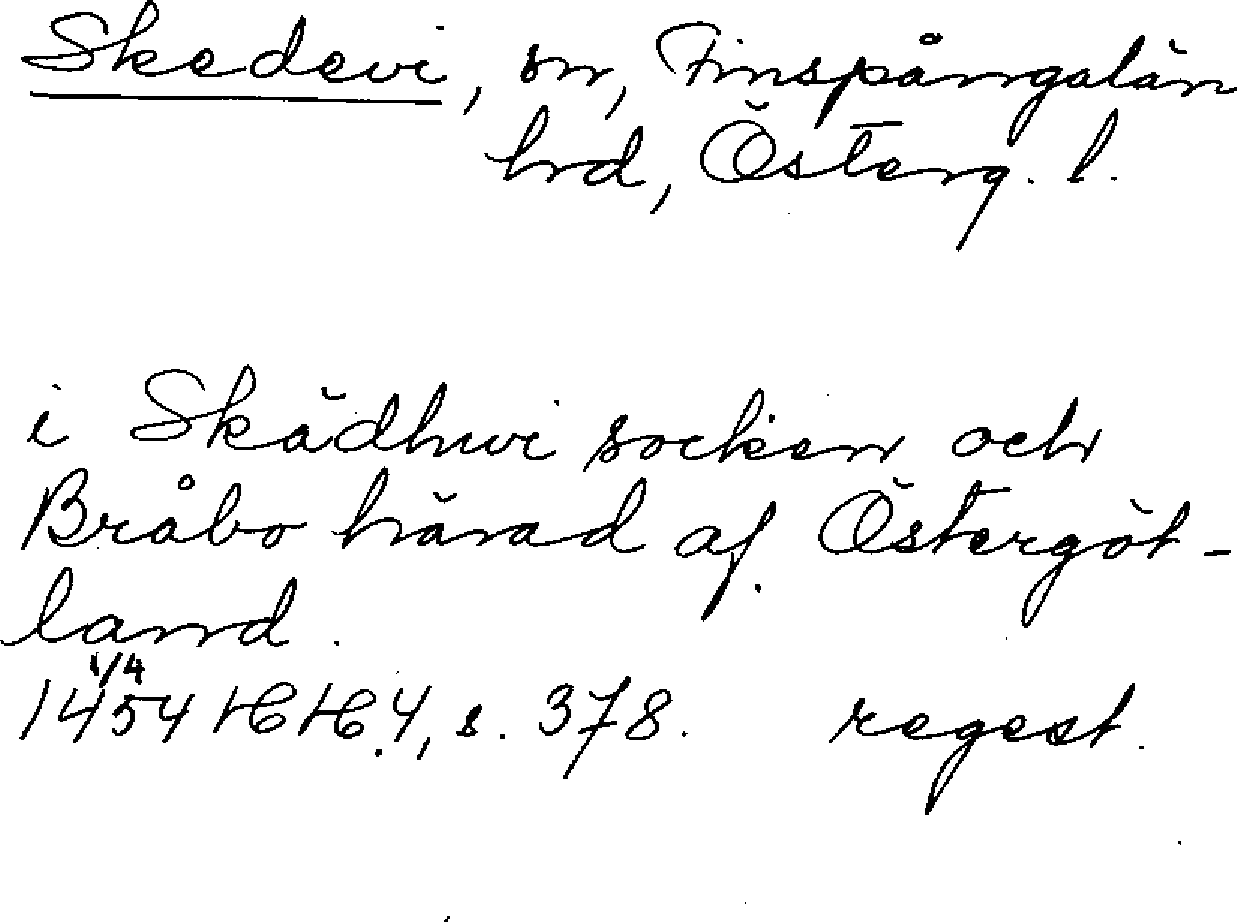 Skedevi, sn, Finspångalän
hrd, Österg. l.
i Skädhwi socken och
Bråbo härad af Östergöt-
land.
1/4
1454 HH.4, s. 378. regest.